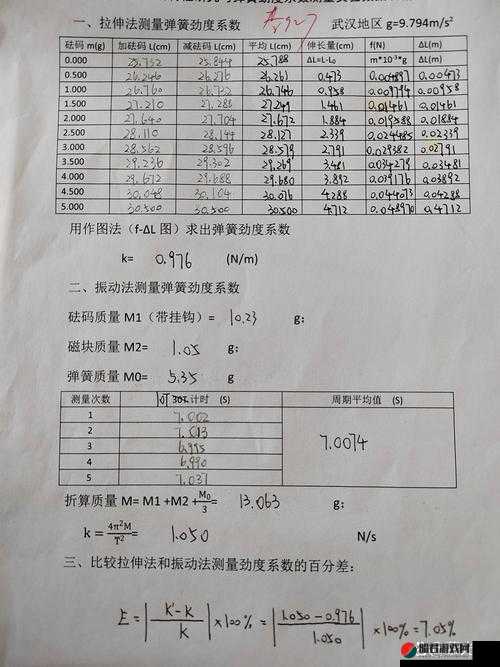 一、拉伸法测量弹簧劲度系数 武汉地区 g=9.794m/s²
砝码 m(g) 加砝码 L(cm) 减砝码 L(cm) 平均 L(cm) 伸长量(cm) f(N) ΔL(m)
0.000 25.732 25.844 25.788 ΔL=L-L₀ m*10⁻³*g ΔL(m)
0.500 26.246 26.276 26.261 0.473 0.004897 0.00473
1.000 26.760 26.732 26.746 0.958 0.009794 0.00958
1.500 27.210 27.288 27.249 1.461 0.01461 0.01461
2.000 27.640 27.704 27.672 1.884 0.01884
2.500 28.110 28.144 28.127 2.339 0.024485 0.02339
3.000 28.562 28.596 28.579 2.791 0.029382 0.02791
3.500 29.236 29.302 29.269 3.481 0.034279 0.03481
4.000 29.672 29.688 29.680 3.892 0.039176 0.03892
4.500 30.048 30.104 30.076 4.288 0.044073 0.04288
5.000 30.500 30.500 30.500 4.712 0.048970 0.4712
用作图法（f-ΔL 图）求出弹簧劲度系数
k= 0.976 (N/m)
二、振动法测量弹簧劲度系数
砝码质量 M1（带挂钩）= 10.23 g;
磁块质量 M2= 1.05 g;
弹簧质量 M0= 5.35 g
测量次数 10T 30T 计时 (S) 周期平均值 (S)
1 7.002
2 7.013
3 6.995
4 6.990
5 7.037
7.0074
折算质量 M= M1 +M2 +M₀/3= 13.063 g;
k = 4π²M/T² = 1.050 N/s
三、比较拉伸法和振动法测量劲度系数的百分差：
E = |K'-K/K| ×100% = |1.050-0.976/1.050| ×100% = 7.05%